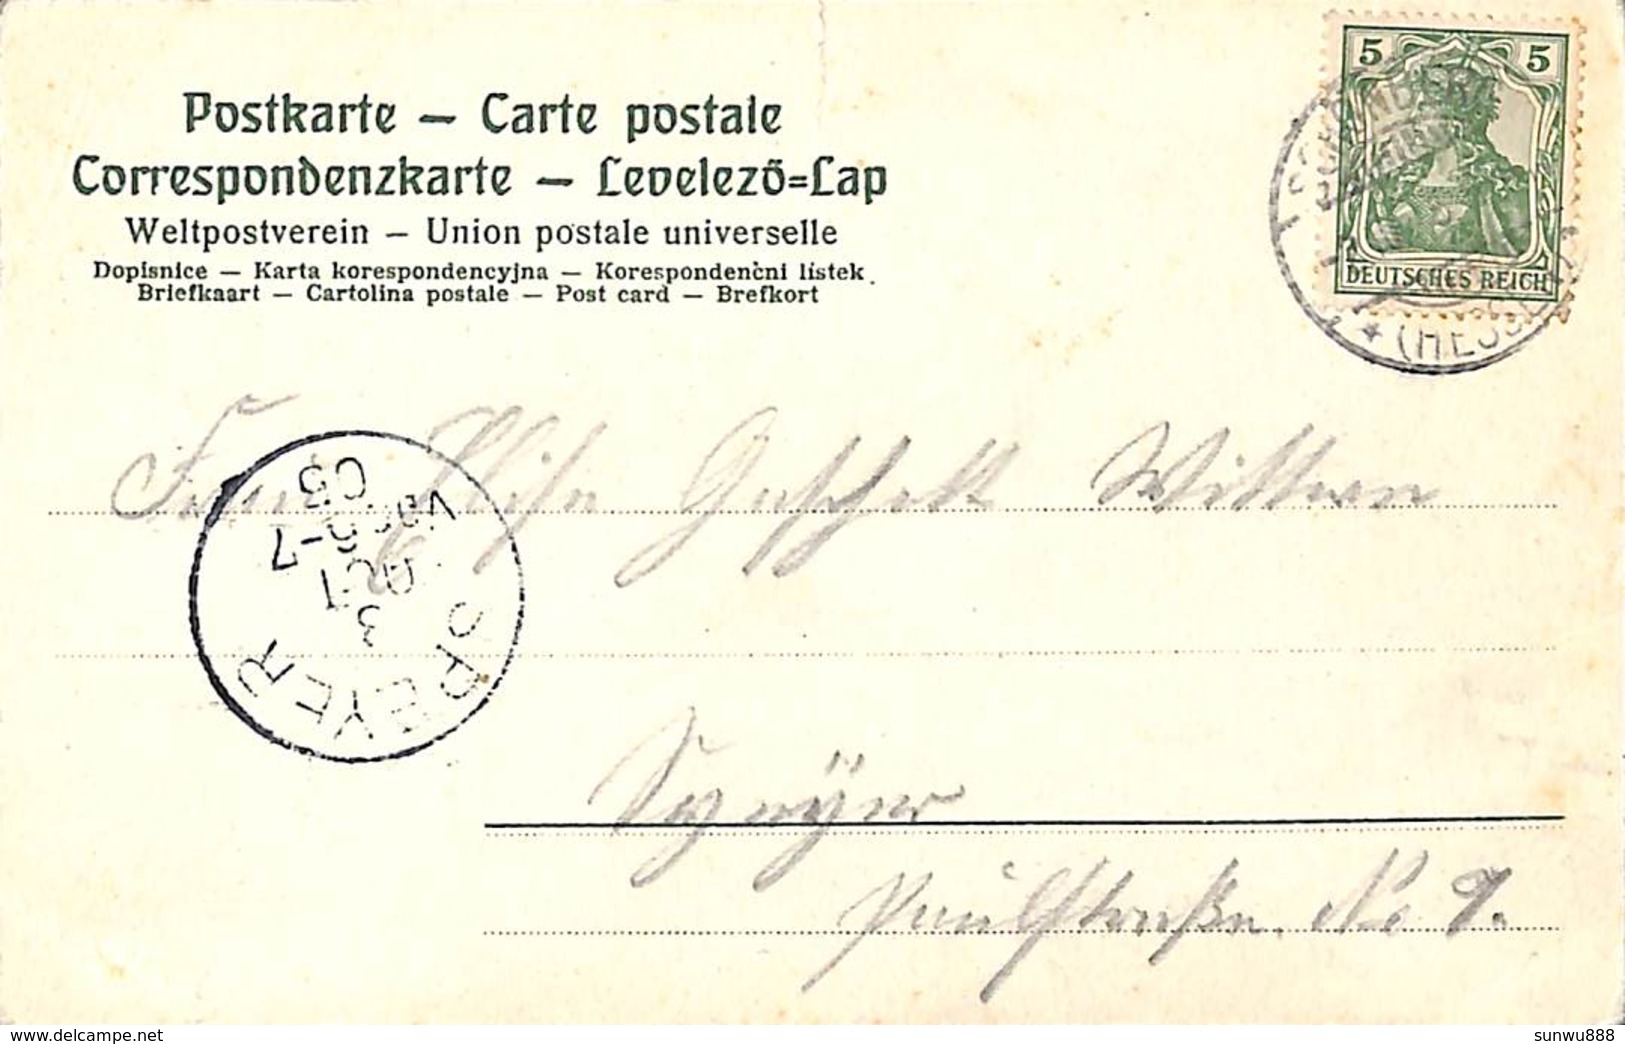 Postkarte – Carte postale
Correspondenzkarte – Levelező=Lap
Weltpostverein – Union postale universelle
Dopisnice – Karta korespondencyjna – Korespondenčni listek
Briefkaart – Cartolina postale – Post card – Brefkort
5 5
DEUTSCHES REICH
* (HESSEN)
Frau Elise Witwe
SPEYER
3
OCT
6-7
03
Speÿer
Paulstraße No 9.
delcampe.net
sunwu888